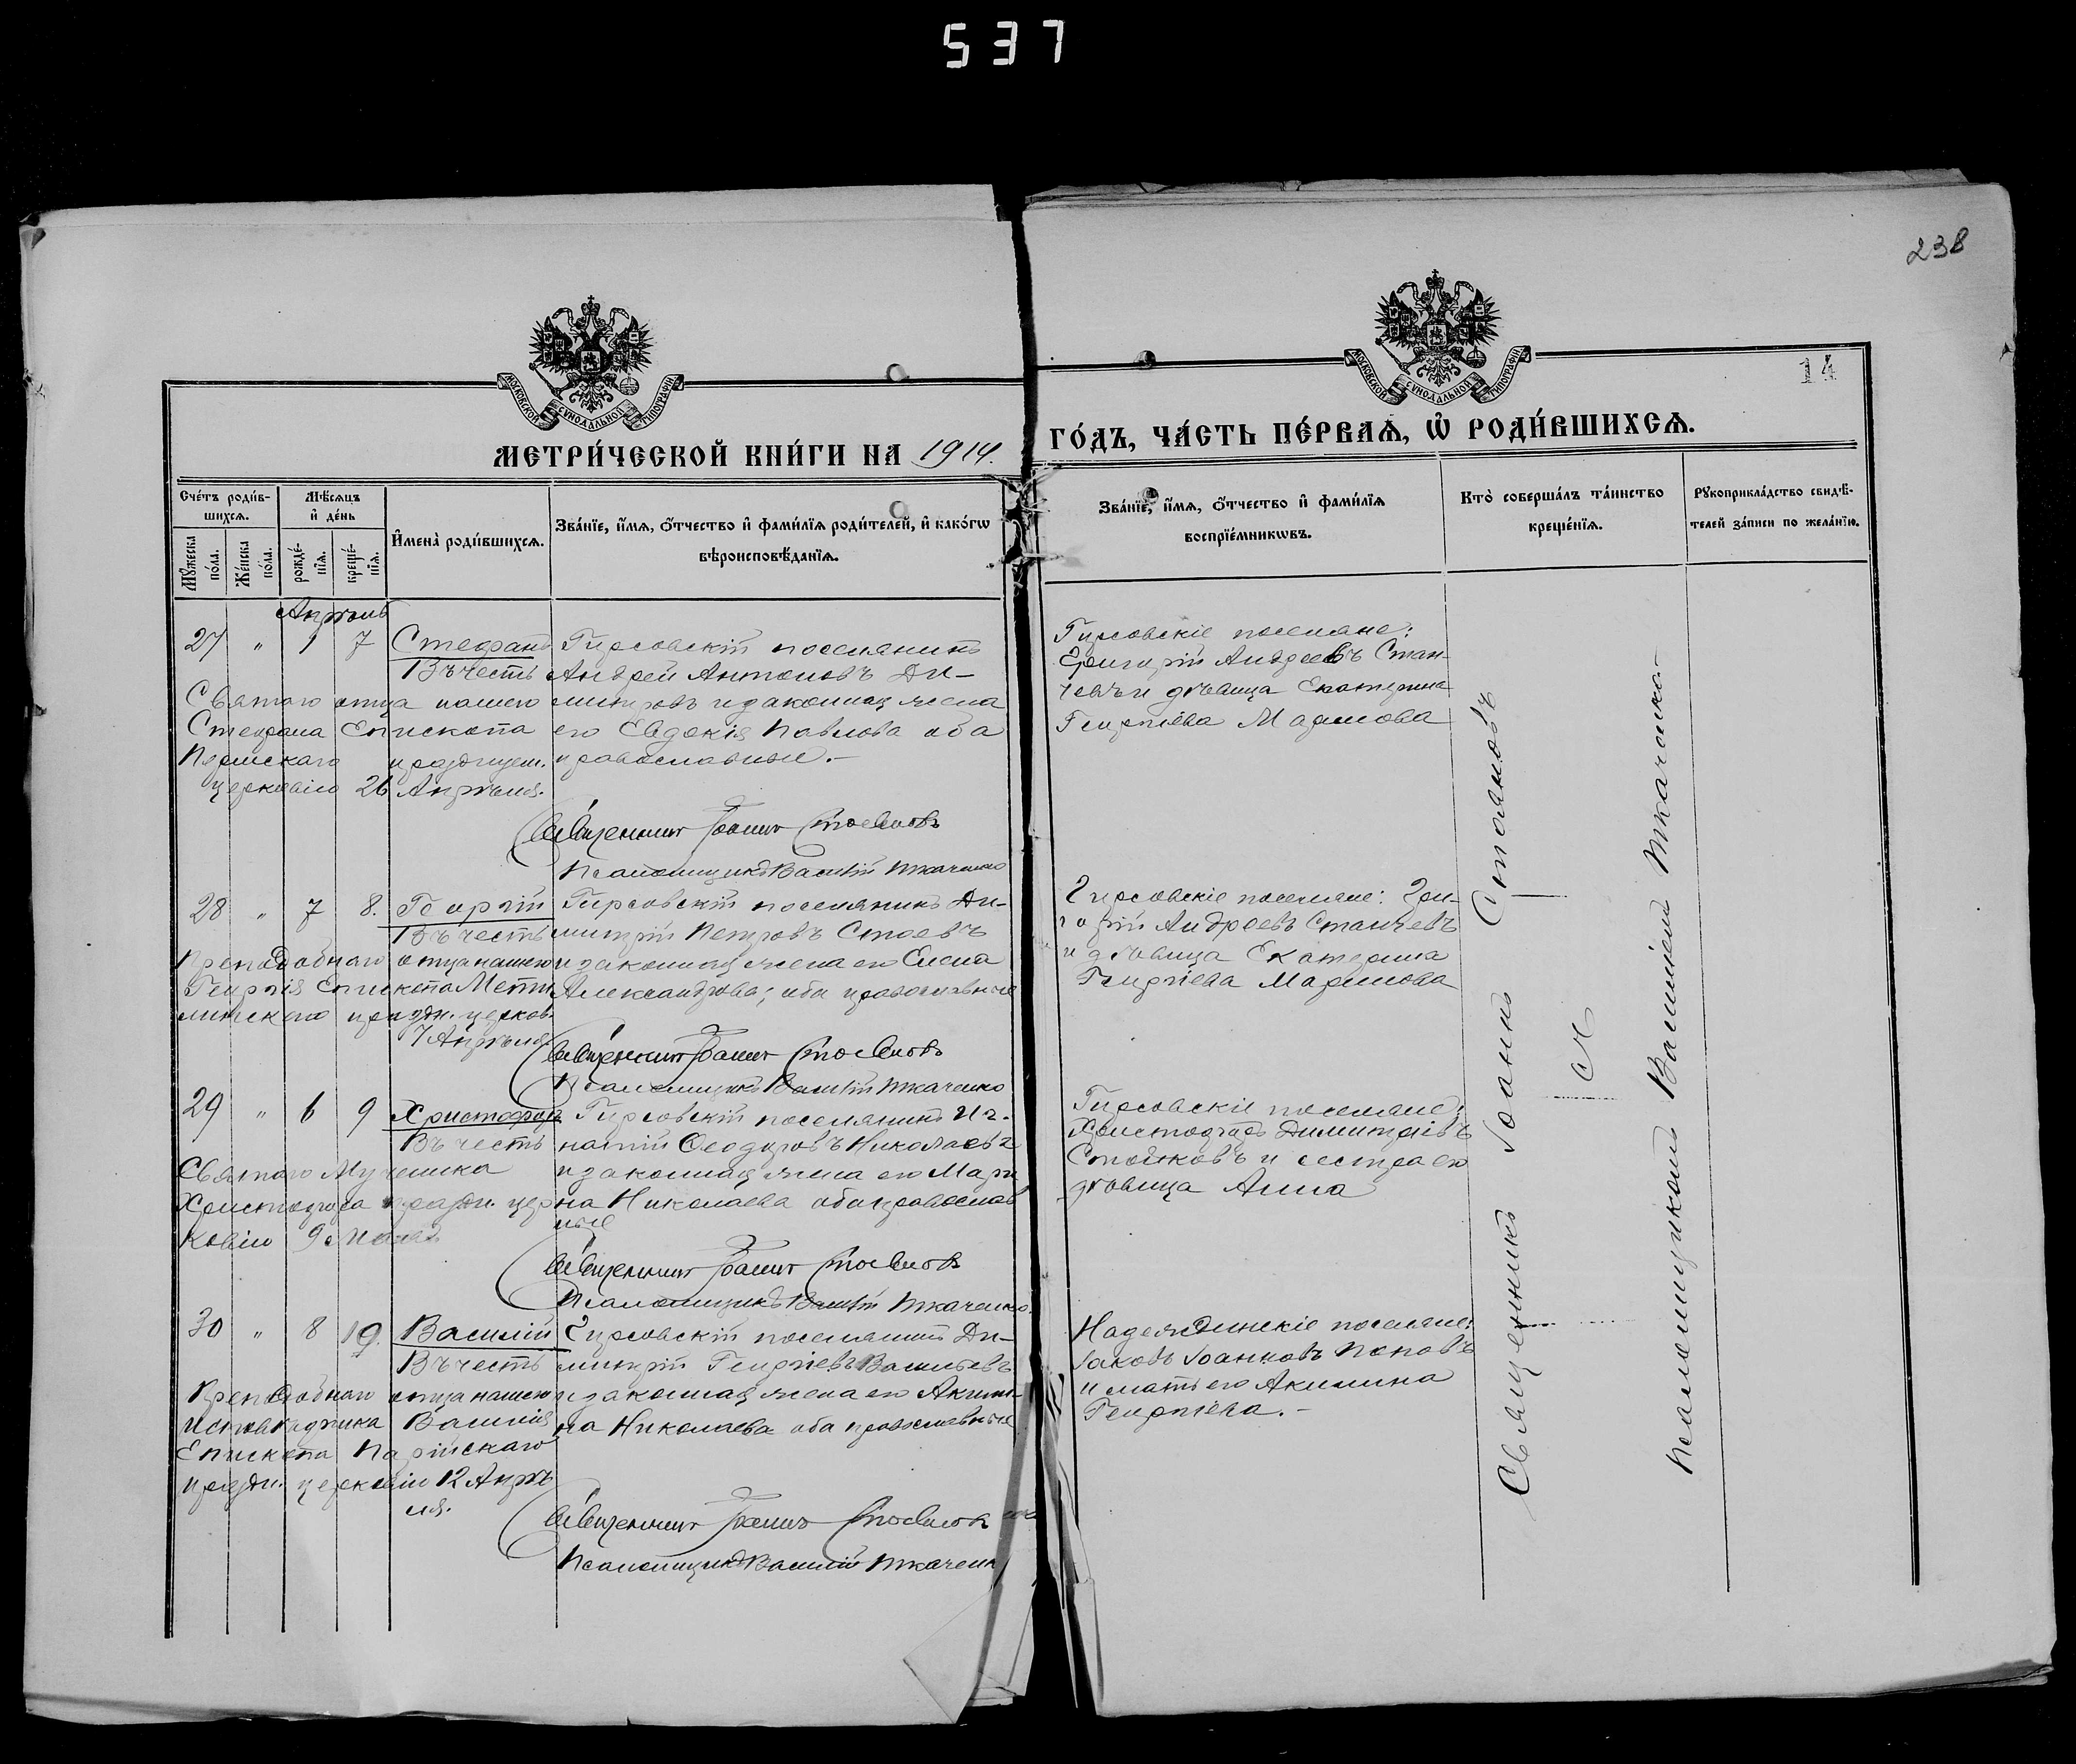 537
238
14
МОСКОВСКОЙ СѴНОДАЛЬНОЙ ТИПОГРАФІИ
МОСКОВСКОЙ СѴНОДАЛЬНОЙ ТИПОГРАФІИ
МЕТРИ́ЧЕСКОЙ КНИ́ГИ НА 1914.
ГО́ДЪ, ЧА́СТЬ ПЕ́РВАѦ, Ѡ҆ РОДИ́ВШИХСѦ.
Сче́тъ роди́в-
шихсѧ.
Мꙋ́жеска по́ла.
Же́нска по́ла.
Мѣ́сѧцъ
и҆ де́нь
рожде́-
нїѧ.
креще́-
нїѧ.
И҆мена̀ роди́вшихсѧ.
Зва́нїе, и҆́мѧ, ѻ҆́тчество и҆ фами́лїѧ роди́телей, и҆ како́гѡ
вѣроисповѣ́данїѧ.
Зва́нїе, и҆́мѧ, ѻ҆́тчество и҆ фами́лїѧ
воспрїе́мникѡвъ.
Кто̀ соверша́лъ та́инство
креще́нїѧ.
Рꙋкоприкла́дство свидѣ́-
телей за́писи по жела́нїю.
Апрѣль
27 " 1 7 Стефанъ
Въ честь
Святаго отца нашего
Стефана Епископа
Пермскаго празднуем.
церковію 26 Апрѣля.
Гирсовскій поселянинъ
Андрей Антоновъ Ди-
митровъ и законная жена
его Евдокія Павлова оба
православные.-
Священникъ Іоаннъ Стояновъ
Псаломщикъ Василій Ткаченко
Гирсовскіе поселяне:
Григорій Андреевъ Стан-
чевъ и дѣвица Екатерина
Георгіева Маринова
28 " 7 8. Георгій
Въ честь
Преподобнаго отца нашего
Георгія Епископа Мети-
линскаго праздн. церков.
7 Апрѣля
Гирсовскій поселянинъ Ди-
митрій Петровъ Стоевъ
и законная жена его Елена
Александрова; оба православные
Священникъ Іоаннъ Стояновъ
Псаломщикъ Василій Ткаченко
Гирсовскіе поселяне: Гри-
горій Андреевъ Станчевъ
и дѣвица Екатерина
Георгіева Маринова
29 " 6 9 Христофоръ
Въ честь
Святаго Мученика
Христофора праздн. цер
ковію 9 Мая
Гирсовскій поселянинъ Иг-
натій Ѳеодоровъ Николаевъ
и законная жена его Мари
на Николаева оба православ
ные
Священникъ Іоаннъ Стояновъ
Псаломщикъ Василій Ткаченко.
Гирсовскіе поселяне:
Христофоръ Димитріевъ
Стойковъ и сестра его
дѣвица Анна
30 " 8 19. Василій
Въ честь
Преподобнаго отца нашего
Исповѣдника Василія
Епископа Парійскаго
праздн. церковію 12 Апрѣ
ля.
Гирсовскій поселянинъ Ди-
митрій Георгіевъ Васильевъ
и законная жена его Акили-
на Николаева оба православные
Священникъ Іоаннъ Стояновъ
Псаломщикъ Василій Ткаченк
Надеждинскіе поселяне:
Іаковъ Іоанновъ Поповъ
и мать его Акилина
Георгіева.-
Священникъ Іоаннъ Стояновъ
съ
Псаломщикомъ Василіемъ Ткаченко.-